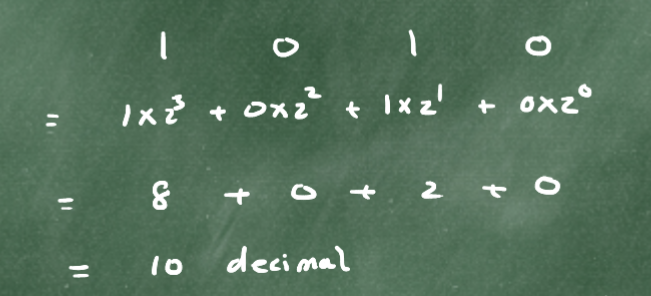 1 0 1 0
= 1×2³ + 0×2² + 1×2¹ + 0×2⁰
= 8 + 0 + 2 + 0
= 10 decimal